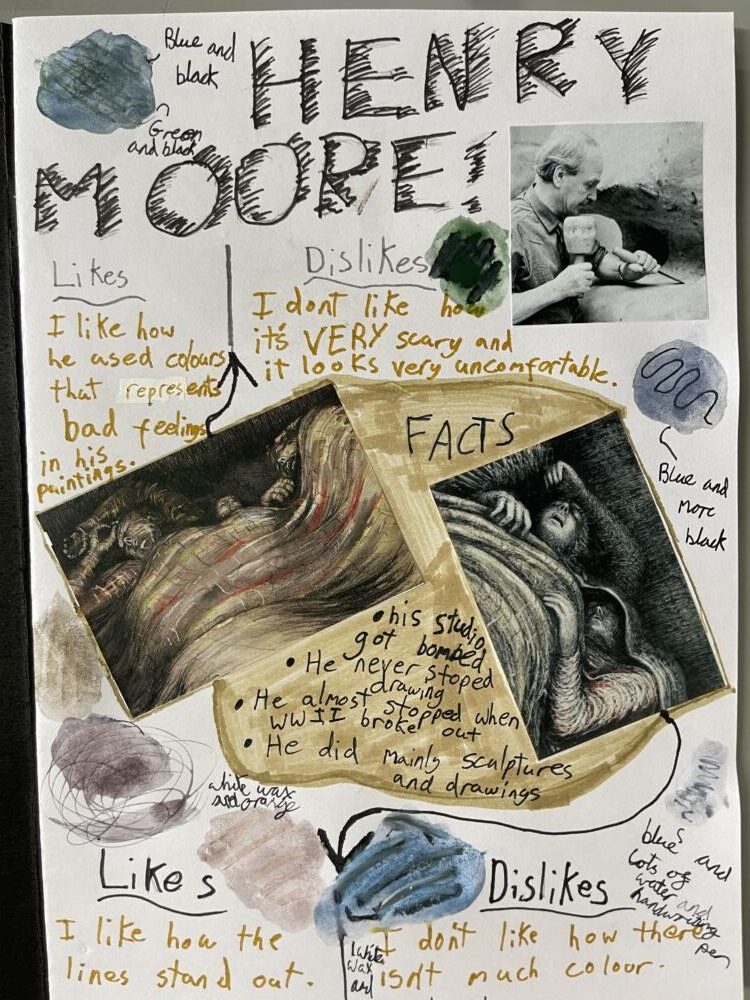 HENRY
MOORE!
Blue and
black
Green
and black
Likes
I like how
he used colours
that represents
bad feelings
in his
paintings.
Dislikes
I dont like how
it's VERY scary and
it looks very uncomfortable.
Blue and
more
black
FACTS
• his studio
got bombed
• He never stoped
drawing
• He almost stopped when
WWII broke out
• He did mainly sculptures
and drawings
white wax
and orange
blues and
lots of
water and
handwriting
pen
Likes
I like how the
lines stand out.
white
wax
and
Dislikes
I don't like how there
isn't much colour.